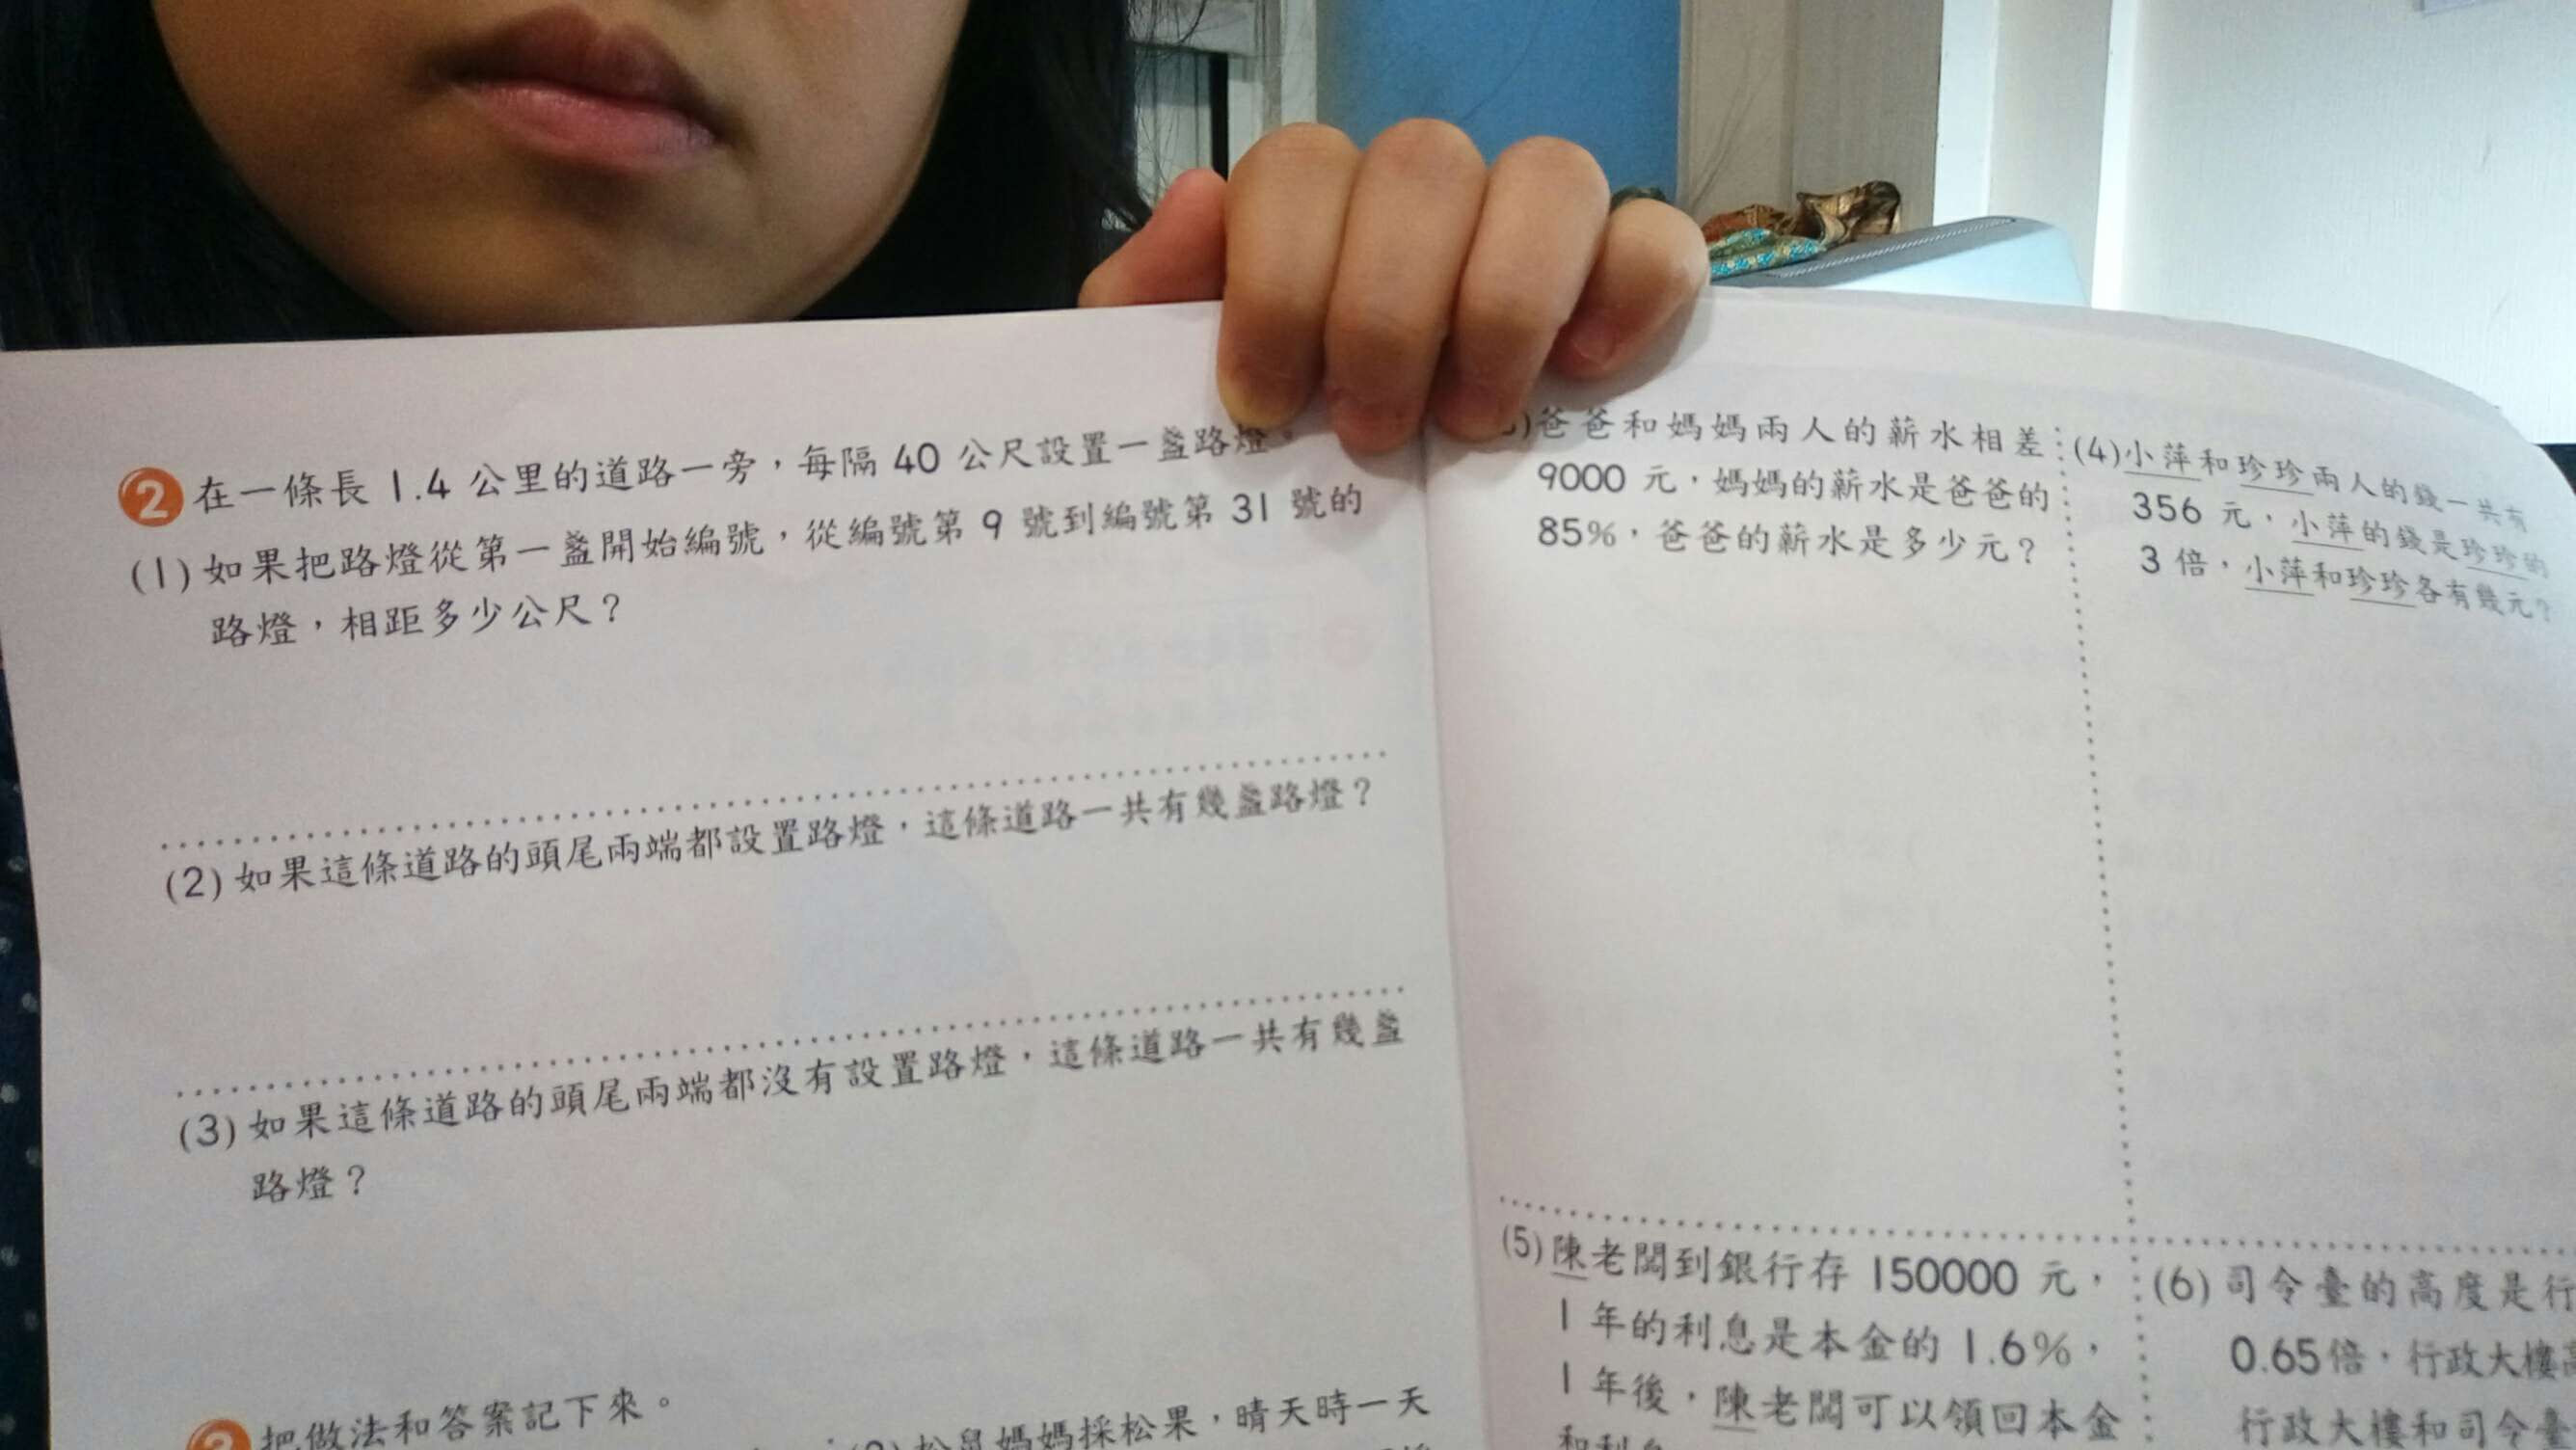 2 在一條長 1.4 公里的道路一旁，每隔 40 公尺設置一盞路燈。
(1) 如果把路燈從第一盞開始編號，從編號第 9 號到編號第 31 號的
路燈，相距多少公尺？
(2) 如果這條道路的頭尾兩端都設置路燈，這條道路一共有幾盞路燈？
(3) 如果這條道路的頭尾兩端都沒有設置路燈，這條道路一共有幾盞
路燈？
把做法和答案記下來。
松鼠媽媽採松果，晴天時一天
)爸爸和媽媽兩人的薪水相差
9000 元，媽媽的薪水是爸爸的
85%，爸爸的薪水是多少元？
(4)小萍和珍珍兩人的錢一共有
356 元，小萍的錢是珍珍的
3 倍，小萍和珍珍各有幾元？
(5)陳老闆到銀行存 150000 元，
1 年的利息是本金的 1.6%，
1 年後，陳老闆可以領回本金
(6)司令臺的高度是行
0.65倍，行政大樓
行政大樓和司令臺